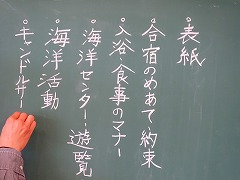 ・表紙
・合宿のめあて約束
・入浴・食事のマナー
・海洋センター遊覧
・海洋活動
・キャンドルサー